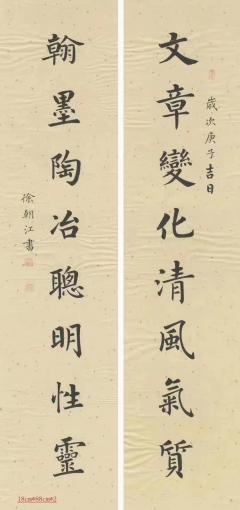 文章變化清風氣质
歲次庚子吉日
翰墨陶冶聰明性靈
徐朝江書
18cm*88cm*2